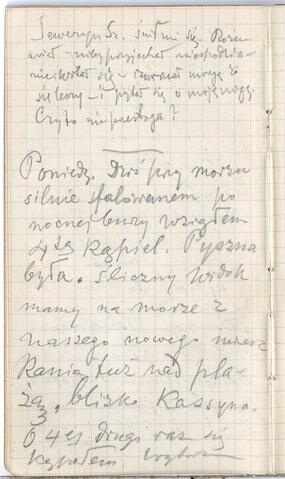 Seweryn Sz. śnił mi się. Rozm
wiał niby przyjechał niespodzia-
nie witał się
się leczy – i pytał się o moje nogi.
Czy to nie przestroga?
Poniedz. Dziś przy morzu
silnie sfalowanem po
nocnej burzy wziąłem
4tą kąpiel. Pyszna
była. Śliczny widok
mamy na morze z
naszego nowego miesz
kania tuż nad pla-
żą, blizko Kassyna.
O 4ej drugi raz się
kąpałem.